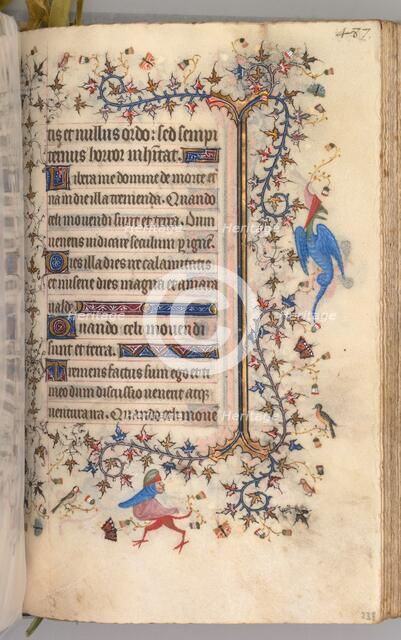 487.
tis et nullus ordo: sed sempi
ternus horror inhitat.
Libera me domine de morte et
na in die illa tremenda. Quando
celi mouendi sunt et terra. Dum
veneris iudicare seculum p igne.
Dies illa dies ire calamitatis
et miserie dies magna et amara
valde.
Quando celi mouendi
sunt et terra.
Tremens factus sum ego et ti
meo dum discussio venerit atq
ventura ira. Quando celi moue
238
Heritage
Heritage
Heritage
Heritage
Heritage
Heritage